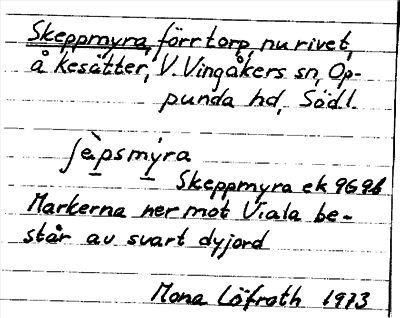 Skeppmyra, förr torp, nu rivet,
å Kesätter, V. Vingåkers sn, Op-
punda hd, Södl.
ʃèpsmýra
Skeppmyra ek 9G9b
Markerna ner mot Viala be-
står av svart dyjord
Mona Löfroth 1973